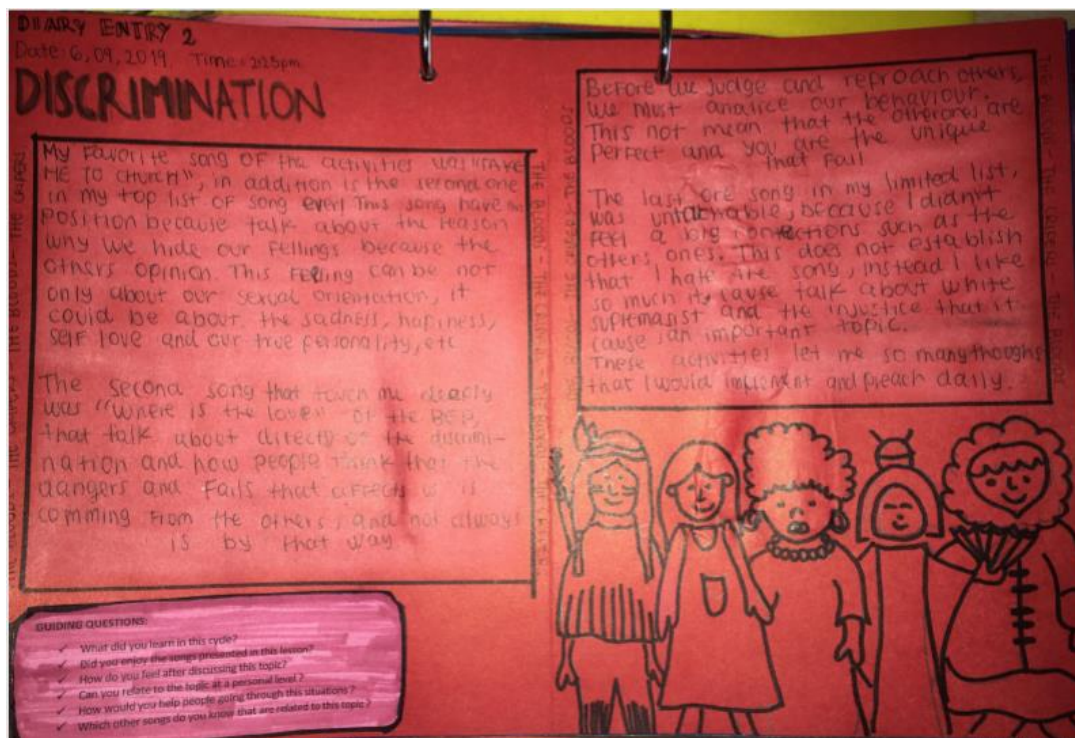 DIARY ENTRY 2
Date: 6, 09, 2019. Time: 2:25pm.
DISCRIMINATION
My Favorite song of the activities was "TAKE
ME TO CHURCH", in addition is the second one
in my top list of song ever! This song have
position because talk about the reason
why we hide our fellings because the
others opinion. This Feeling can be not
only about our sexual orientation, it
could be about the sadness, hapiness,
self love and our true personality, etc
The second song that me deeply
was "Where is the love" of the BEP
that talk about directly of the discrimi-
nation and how people think that the
dangers and Fails that affects us is
comming From the others, and not always
is by that way
GUIDING QUESTIONS:
✓ What did you learn in this cycle?
✓ Did you enjoy the songs presented in this lesson?
✓ How do you feel after discussing this topic?
✓ Can you relate to the topic at a personal level?
✓ How would you help people going through this situations?
✓ Which other songs do you know that are related to this topic?
Before we judge and reproach others,
we must analice our behaviour.
This not mean that the otherones are
perfect and you are the unique
that Fail
The last one song in my limited list,
was, because I didn't
Feel a big such as the
others ones. This does not establish
that I hate the song, instead I like
so much it, cause talk about white
supremasist and the injustice that it
cause an important topic.
These activities let me so many thoughs
that I would implement and preach daily.
THE BLOODS - THE CRIPERS - THE BLOODS